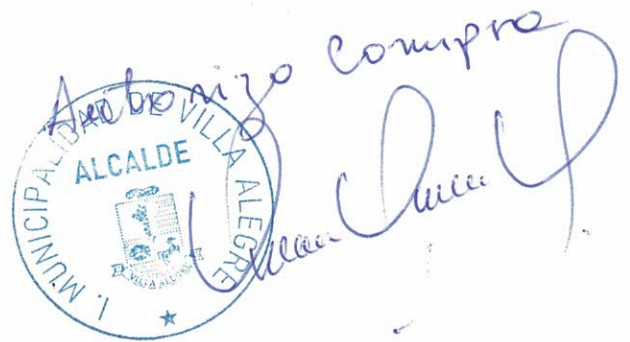 Autorizo Compra
I. MUNICIPALIDAD DE VILLA ALEGRE
ALCALDE
VILLA ALEGRE